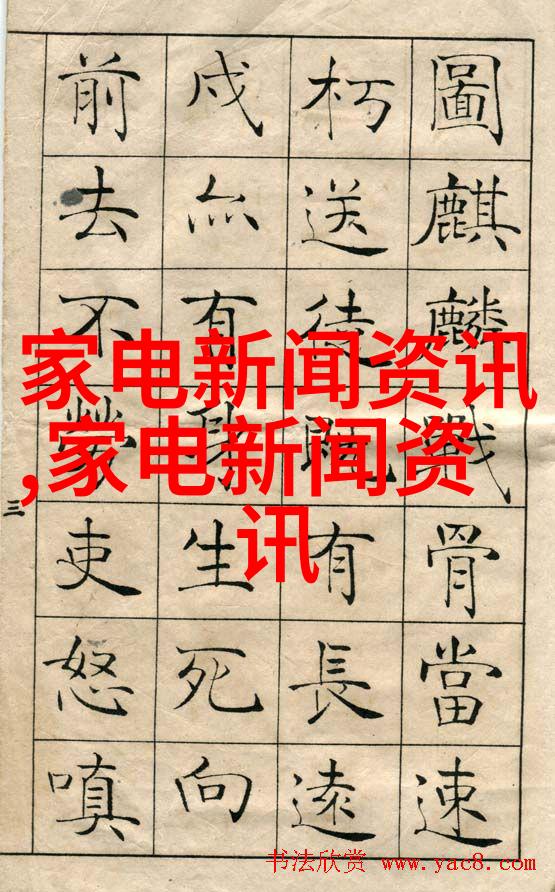 圖麒麟戰骨當速
朽送徒既有長遠
戍亦有身生死向
前去不勞吏怒嗔
三
家电新闻资讯
,家电新闻资
讯
书法欣赏 www.yac8.com